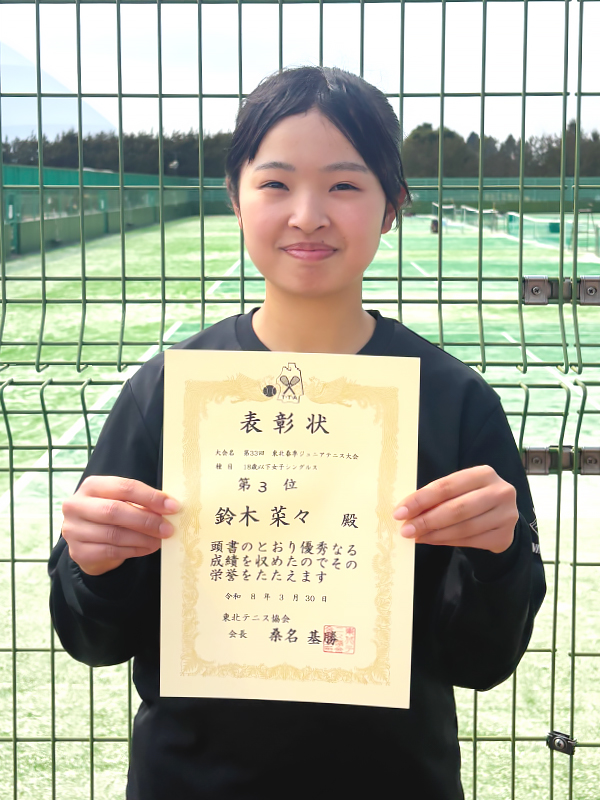 T T A
表彰状
大会名 第33回 東北春季ジュニアテニス大会
種目 18歳以下女子シングルス
第 3 位
鈴木 菜々 殿
頭書のとおり優秀なる
成績を収めたのでその
栄誉をたたえます
令和 8 年 3 月 30 日
東北テニス協会
会長 桑名 基勝